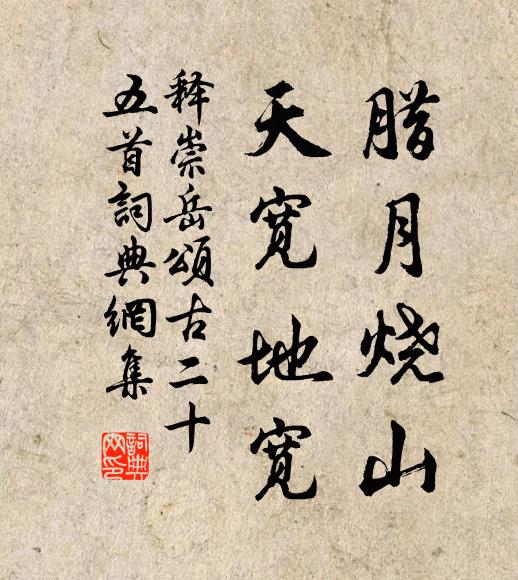 腊月烧山
天宽地宽
释崇岳颂古二十
五首詞典網集
詞典
网印